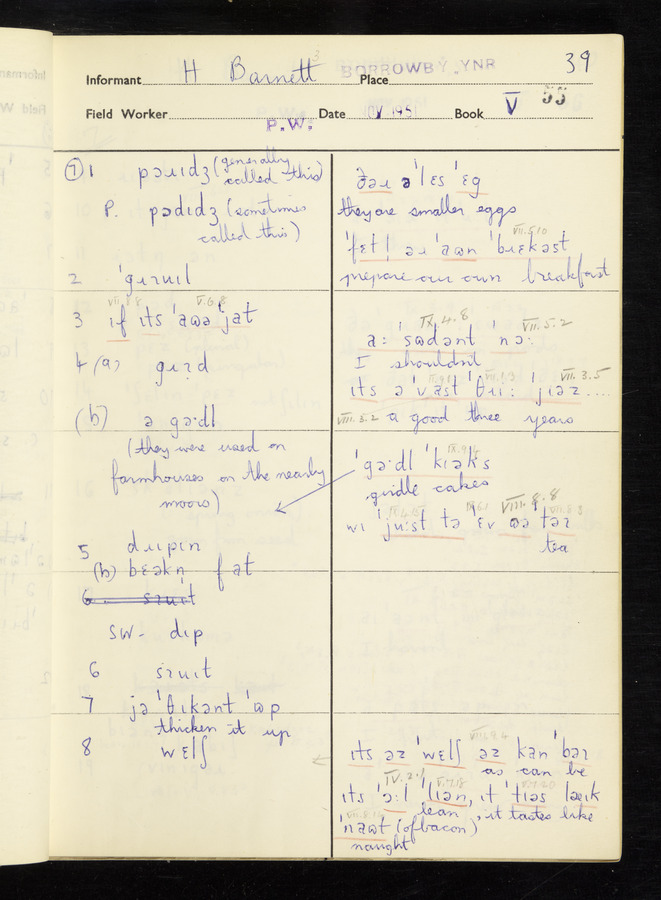 39
Informant H Barnett Place BORROWBY YNR
Field Worker P.W. Date Book V 55
⑦ 1 pəɹɪdʒ (generally
called this)
P. pədɪdʒ (sometimes
called this)
2 ˈgɪɹuɪl
3 ɪf ɪts ˈaʊə ˈjat
V.6.8
4 (a) gɪɹd
(b) ə gəˑdl
(they were used on
farmhouses on the nearby
moors)
5 dɹɪpɪn
(b) bɛəkn̩ fat
6. sɪuɪt
SW- dɪp
6 sɪuɪt
7 jə ˈθɪkənt ˈʊp
thicken it up
8 wɛlʃ
ðəɪ ə ˈlɛs ˈɛg
they are smaller eggs
VII.5.10
ˈfɛtl əɪ ˈaʊn ˈbɹɛkəst
prepare our own breakfast
IX.4.8 VII.5.2
aː ˈsʊdənt ˈnɔː
I shouldn't
VII.3.5
ɪts ə ˈvast ˈθɹiː ˈjɪəz ....
VIII.3.2 a good three years
ˈgəˑdl ˈkɪəks
girdle cakes
VIII.8.8
wɪ ˈjuɪst tə ˈɛv ʊə ˈtɪəz
tea
ɪts əz ˈwɛlʃ əz kən ˈbɪəz
as can be
ɪts ˈɔːl ˈlɪən, ɪt ˈtɪəs laɪk
lean, it tastes like
ˈnaʊt (of bacon)
naught